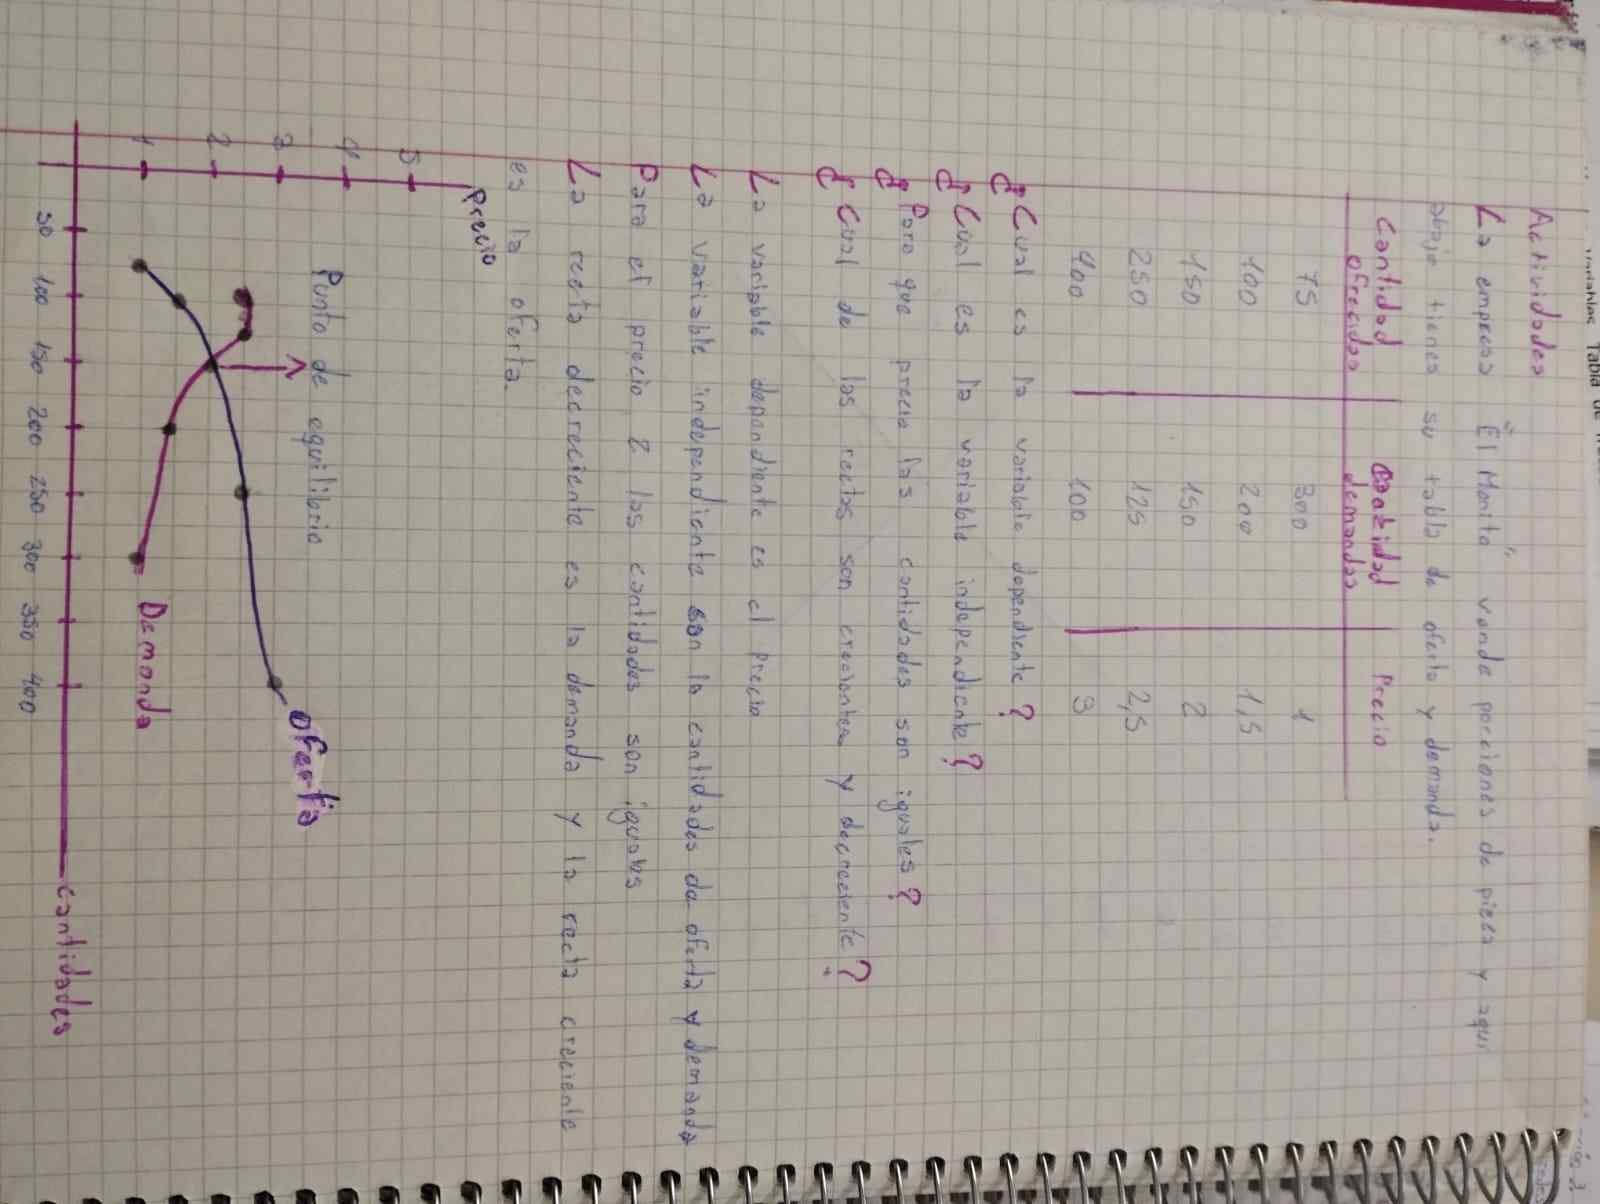 Actividades
La empresa "El Monito" vende porciones de pizza y aqui
abajo tienes su tabla de oferta y demanda.
Cantidad ofrecidas Cantidad demandas Precio
75 300 1
100 200 1,5
150 150 2
250 125 2,5
400 100 3
¿Cual es la variable dependiente?
¿Cual es la variable independiente?
¿Para que precio las cantidades son iguales?
¿Cual de las rectas son crecientes y decreciente?
La variable dependiente es el precio
La variable independiente son la cantidades de oferta y demanda
Para el precio 2 las cantidades son iguales
La recta decreciente es la demanda y la recta creciente
es la oferta.
Precio
5
4
3
2
1
Punto de equilibrio
Oferta
Demanda
50 100 150 200 250 300 350 400
Cantidades